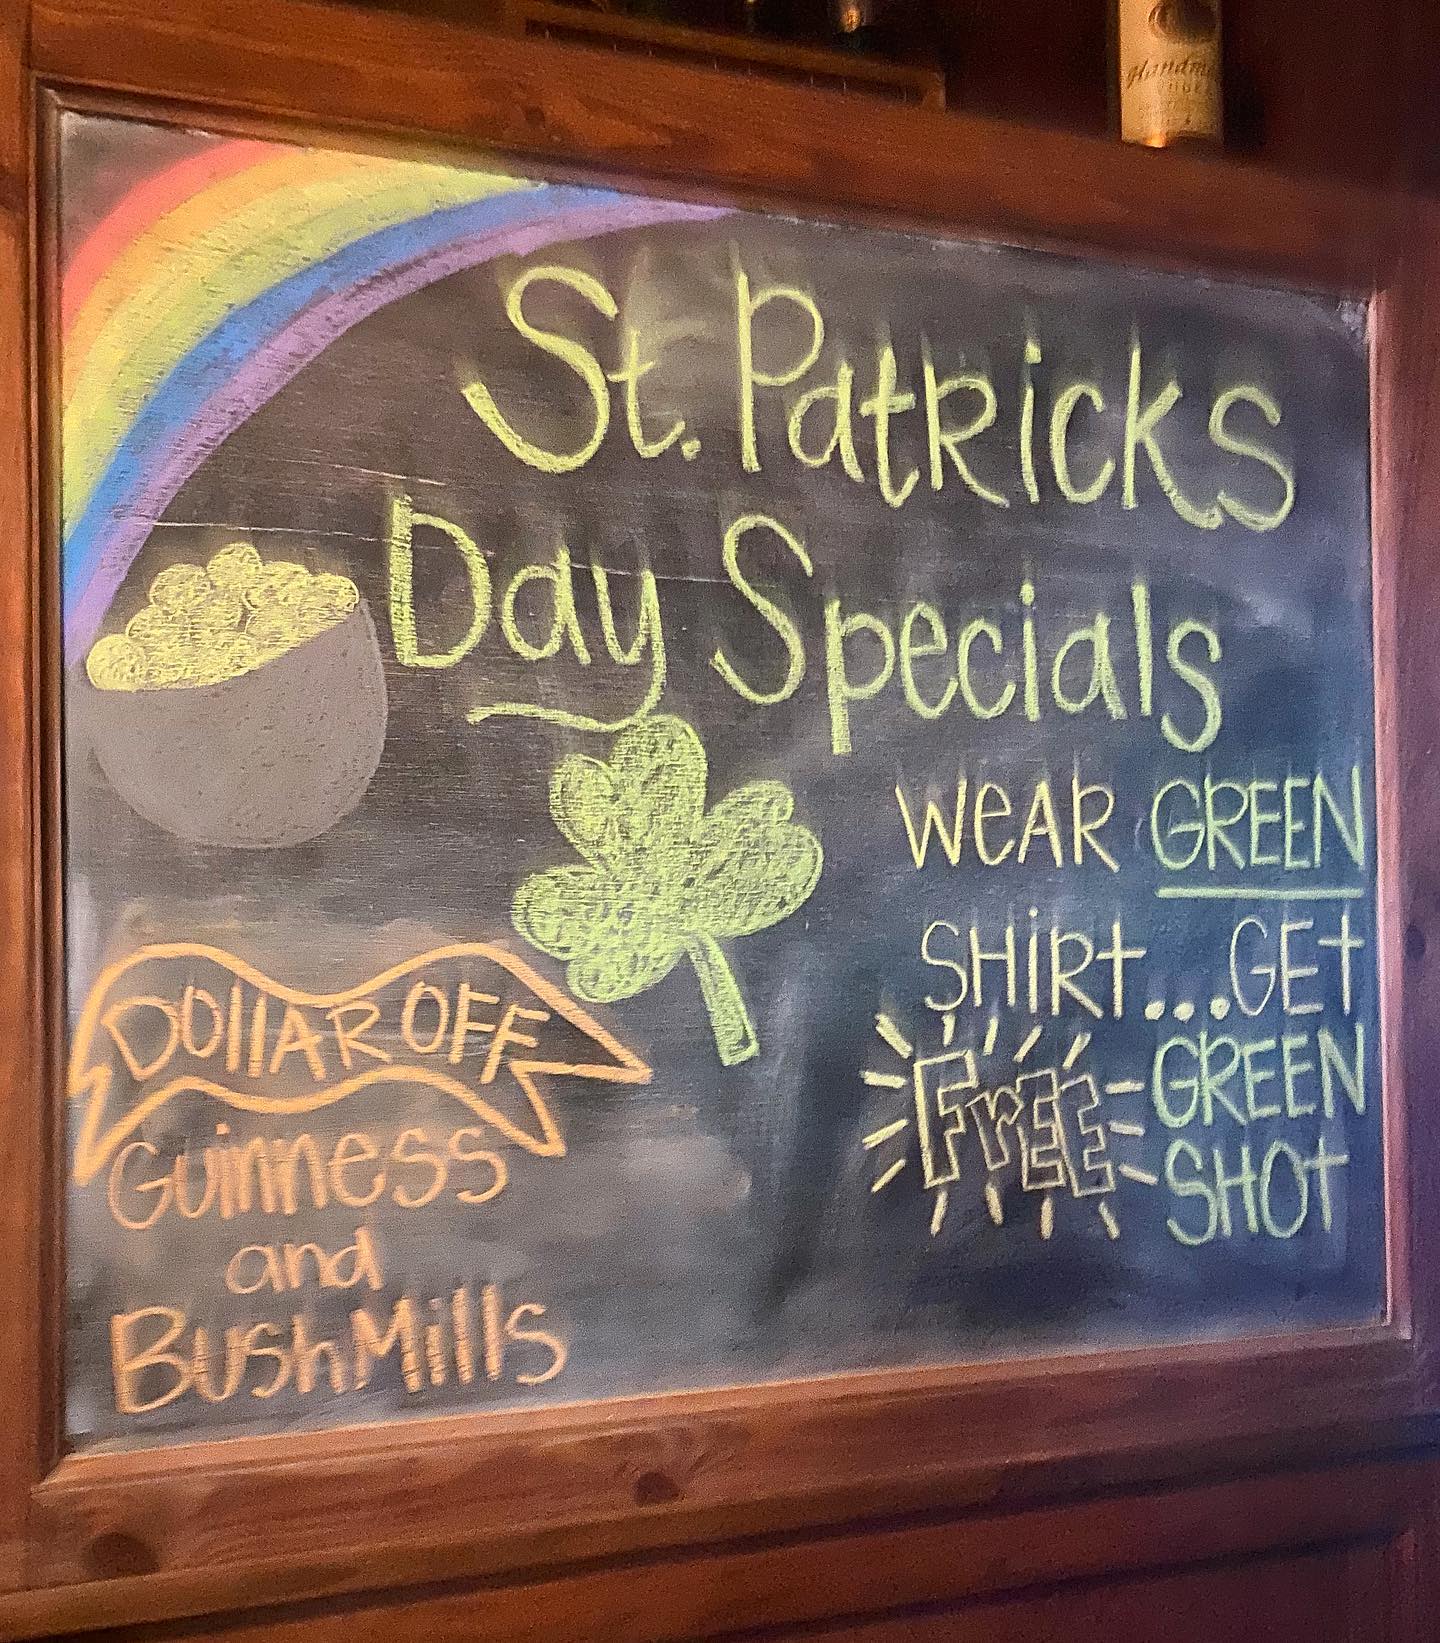 St. Patricks
Day Specials
WeAR GREEN
SHiRt...GEt
FrEE GREEN
SHOt
DOllAR OFF
Guinness
and
BushMills